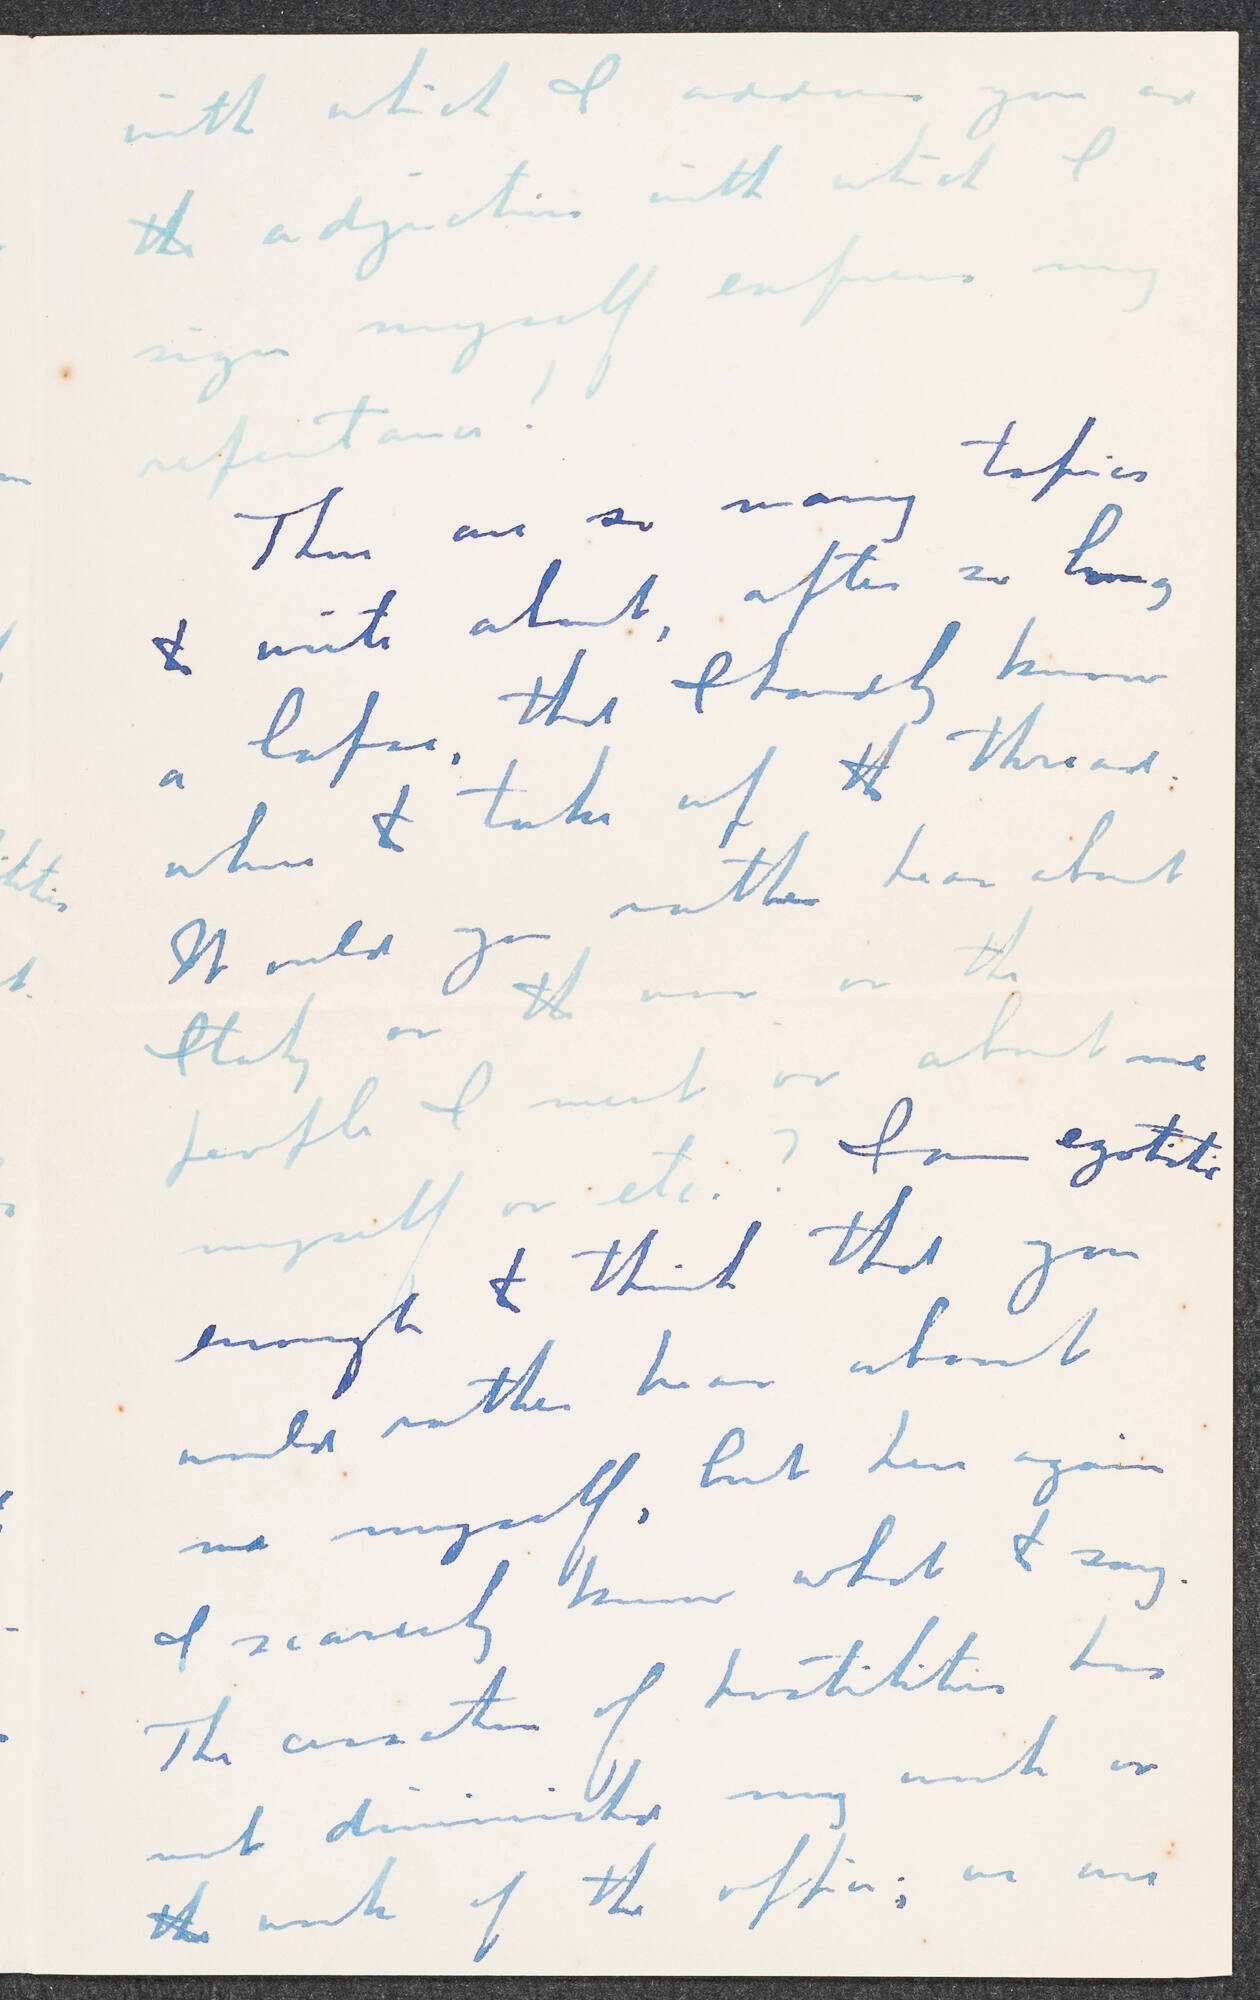 with which I address you or
the adjectives with which I
sign myself express my
repentance!
There are so many topics
to write about, after so long
a lapse, that I hardly know
where to take up the thread.
Would you rather hear about
Italy or the war or the
people I meet or about me
myself or etc.? I am egotistic
enough to think that you
would rather hear about
me myself, but here again
I scarcely know what to say.
The cessation of hostilities has
not diminished my work or
the work of the office; we are